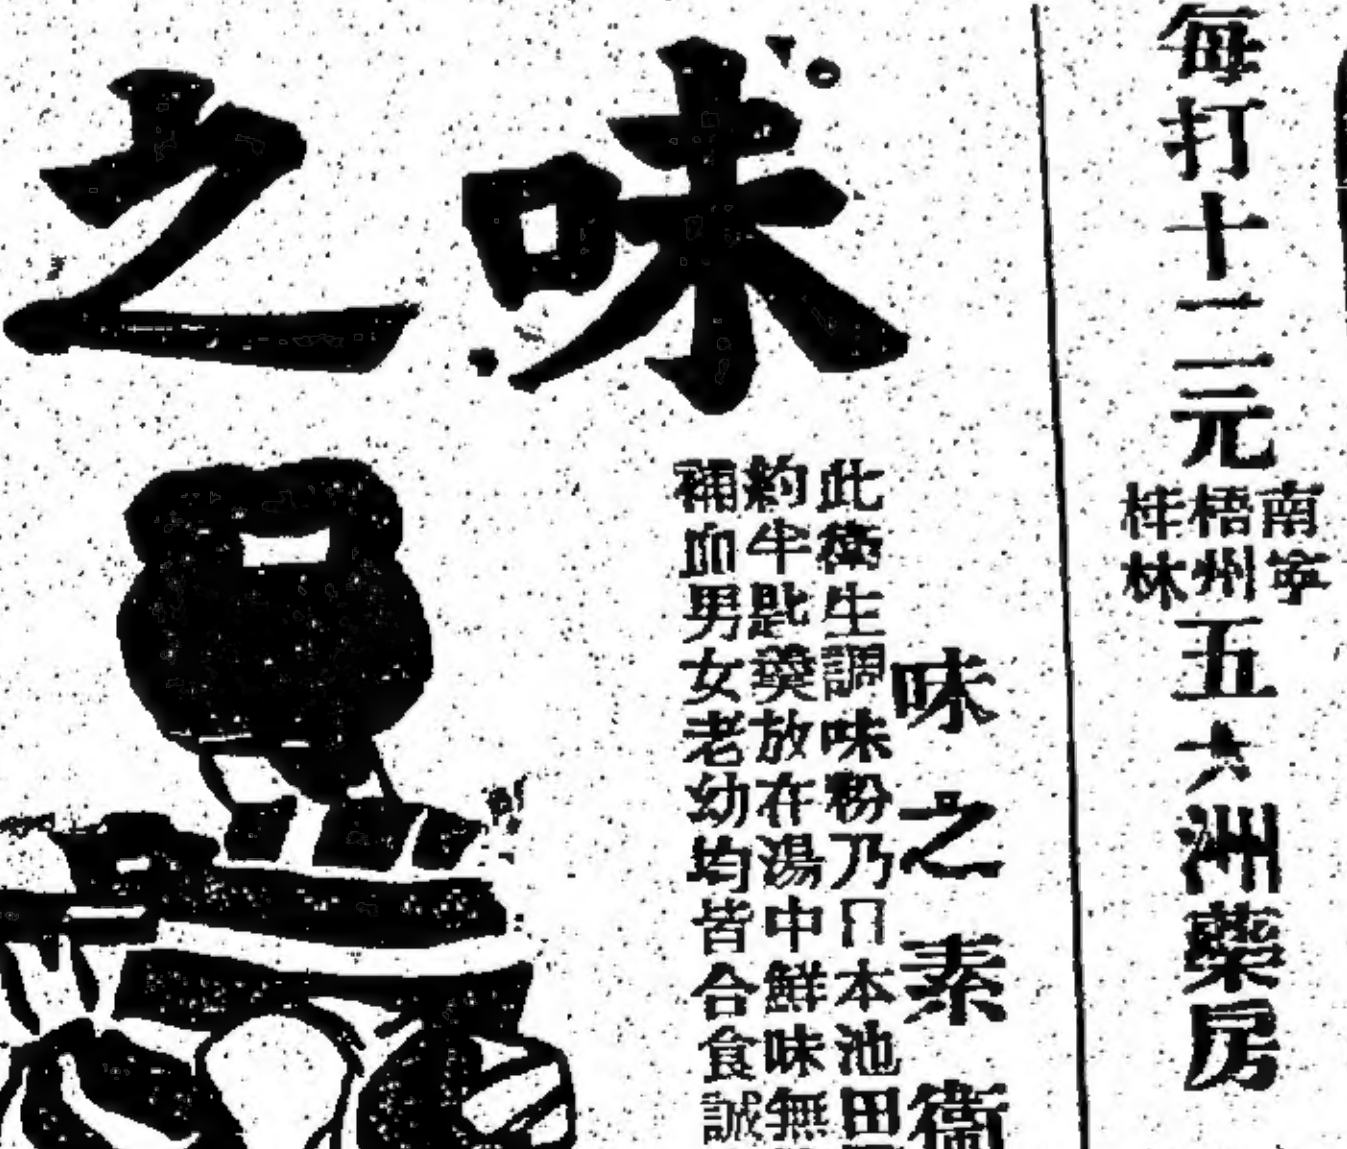 每打十二元
南寧
梧州
桂林
五大洲藥房
味之
味之素衛
此衛生調味粉乃日本池田
約半匙羹放在湯中鮮味無
補血男女老幼均皆合食誠